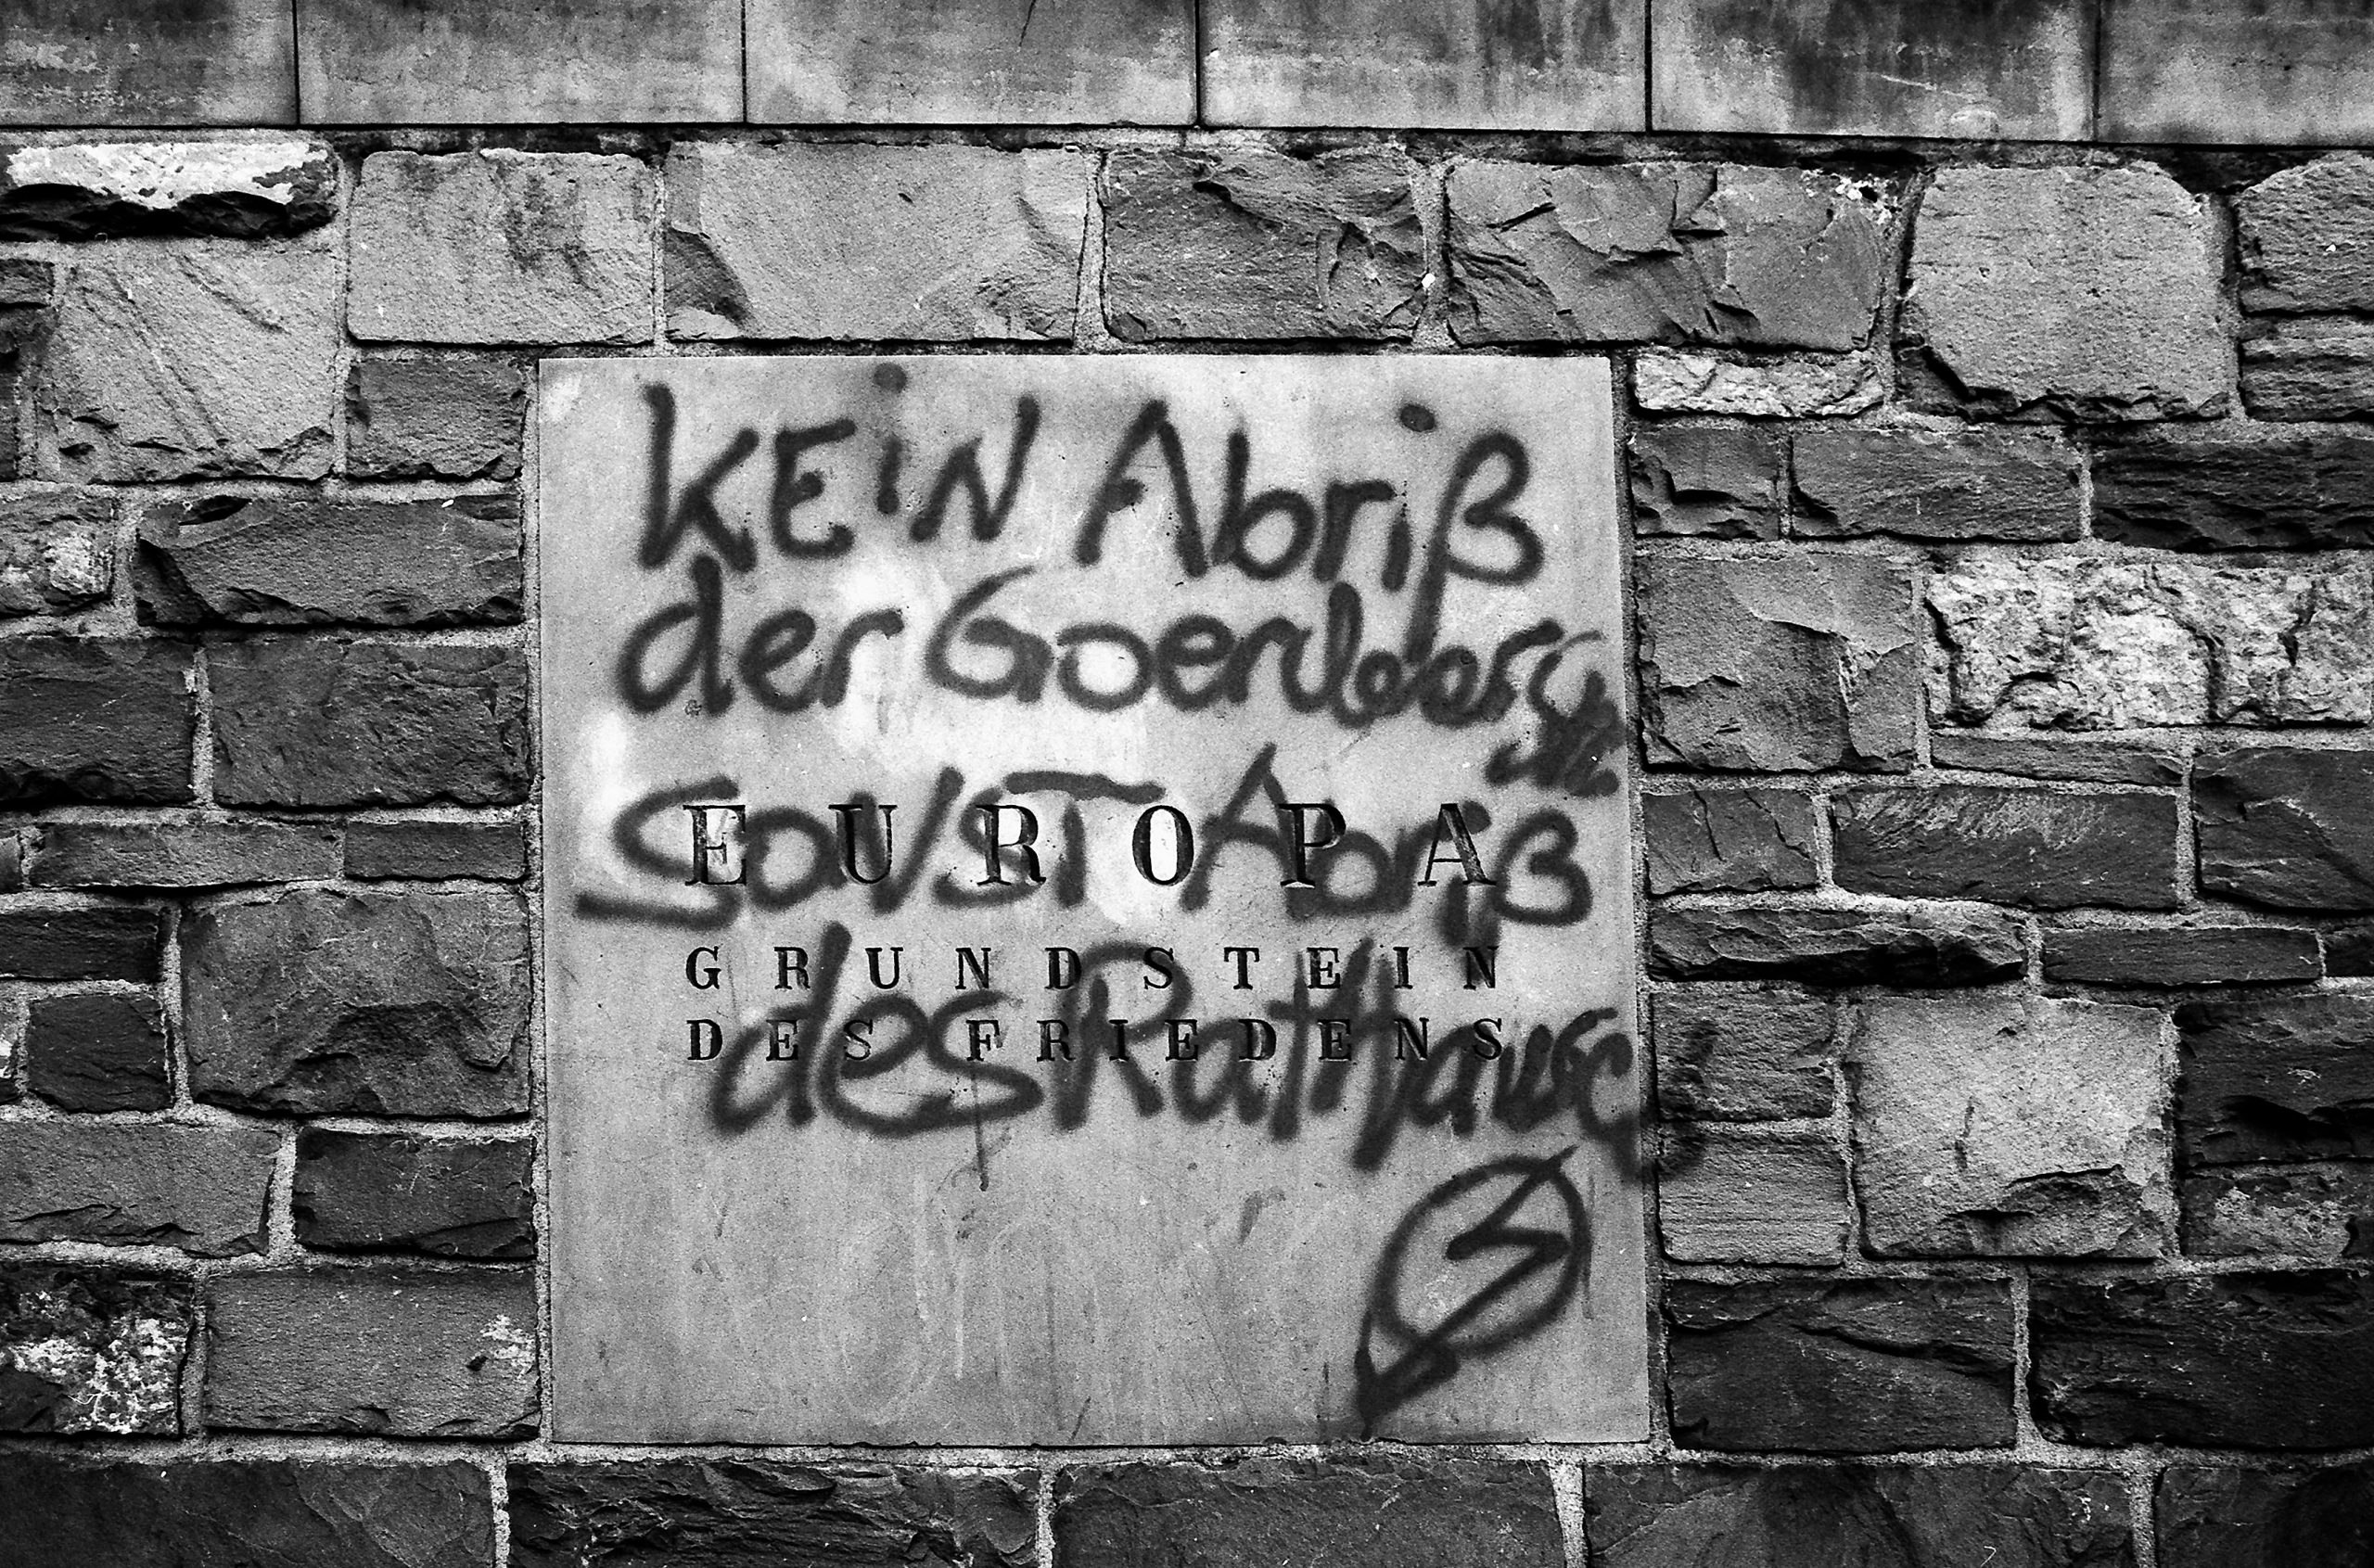 KEiN Abriß
der
SONST Abriß
des
EUROPA
GRUNDSTEIN
DES FRIEDENS